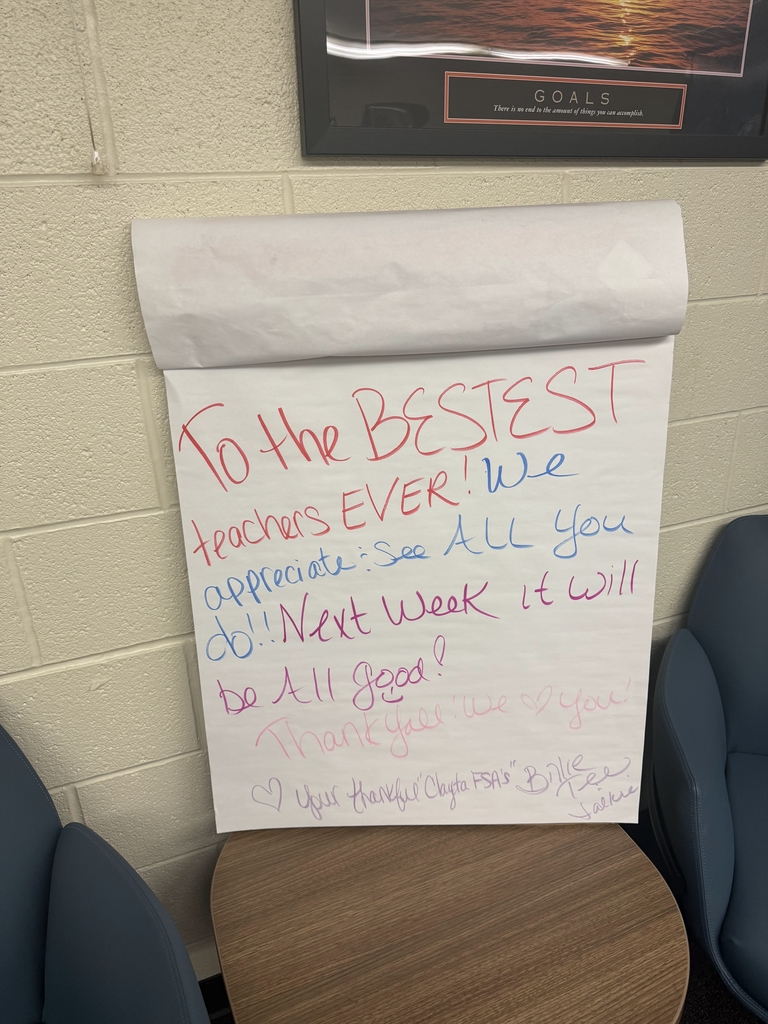 GOALS
There is no end to the amount of things you can accomplish.
To the BESTEST
teachers EVER! We
appreciate : see ALL You
do!! Next Week it will
be All good!
Thank Yall! We ♡ You!
♡ Your thankful "Clayta FSA's" Billie
Tee
Jackie